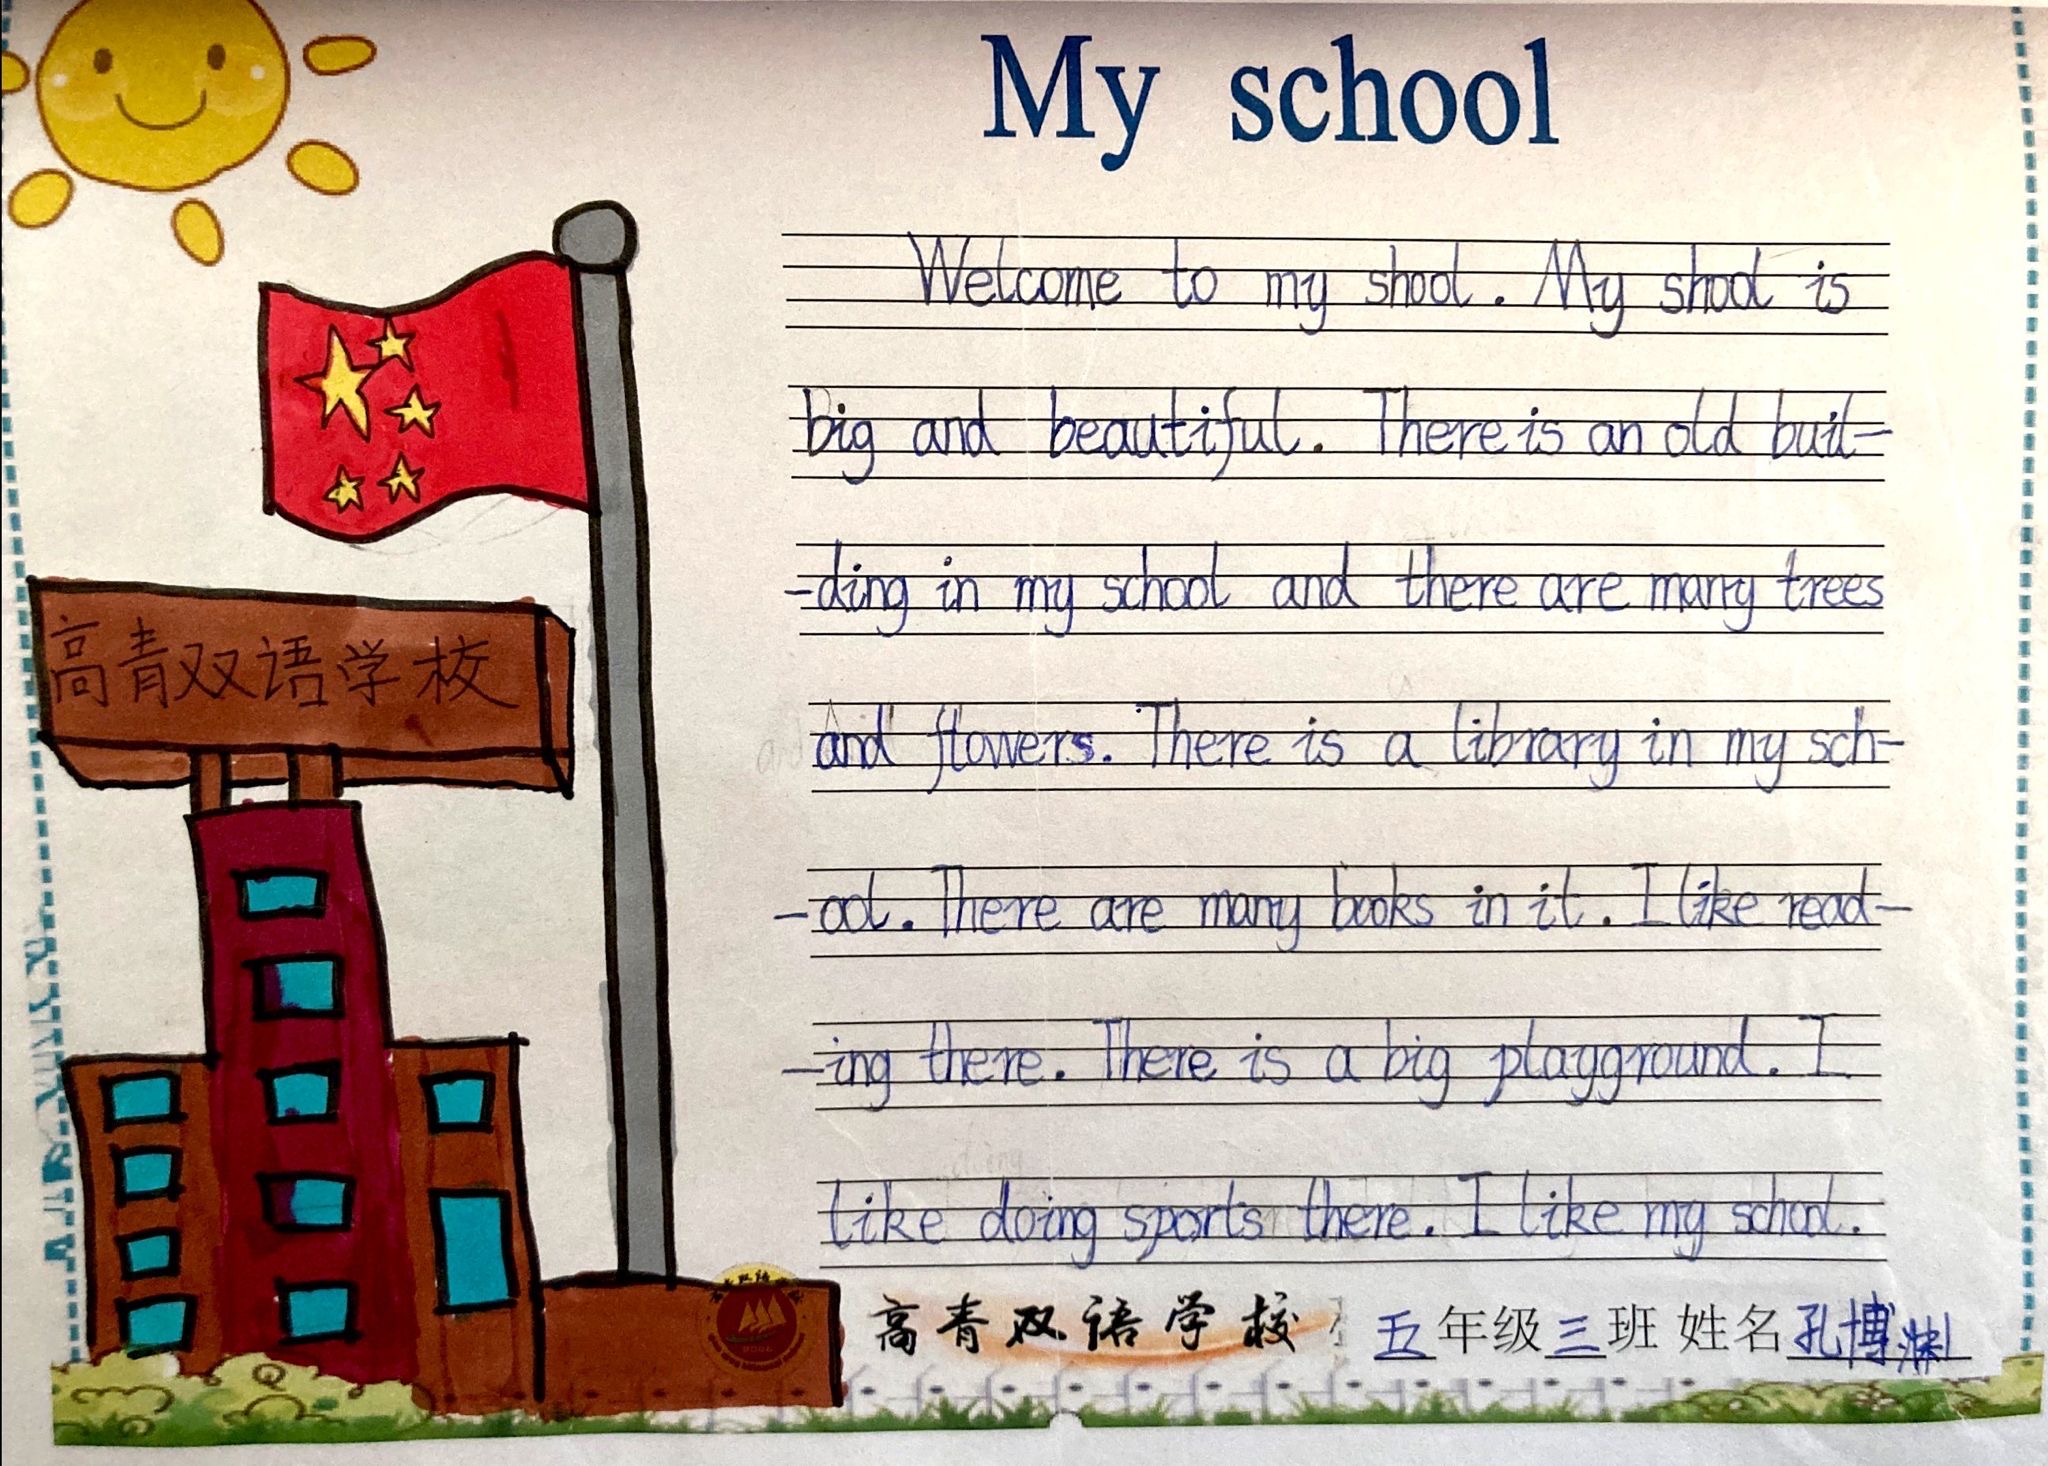 My school
Welcome to my shool. My shool is
big and beautiful. There is an old buil-
-ding in my school and there are many trees
and flowers. There is a library in my sch-
-ool. There are many books in it. I like read-
-ing there. There is a big playground. I
like doing sports there. I like my school.
高青双语学校
高青双语学校 五年级三班 姓名孔博渊